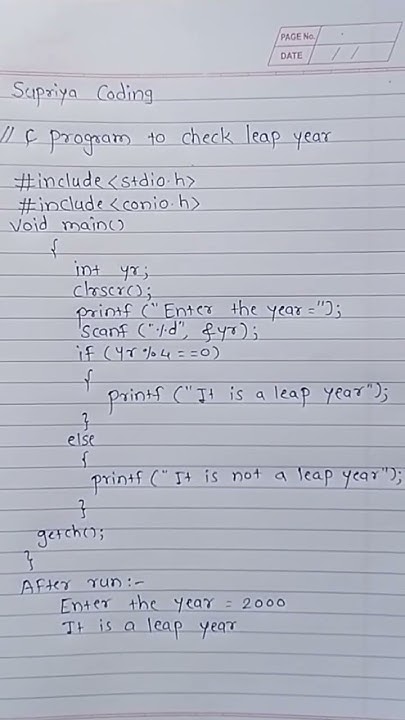 PAGE No.
DATE / /
Supriya Coding
// C program to check leap year
#include<stdio.h>
#include<conio.h>
void main()
{
int yr;
clrscr();
printf ("Enter the year=");
scanf ("%d", &yr);
if (yr%4==0)
{
printf ("It is a leap year");
}
else
{
printf ("It is not a leap year");
}
getch();
}
After run:-
Enter the year = 2000
It is a leap year